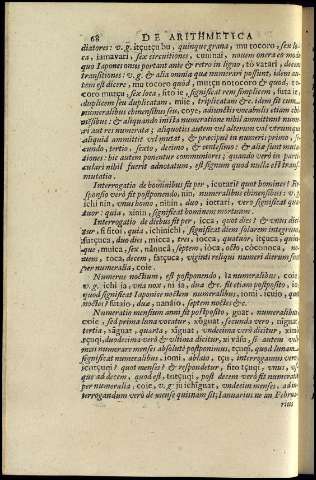 68 DE ARITHMETYCA
ctiores: v. g. itçutçu bu, quinque grana, mu tocoro, sex lo
ca, iamavari, sex circuitiones, cuinai, novem opera eo modo
quo Iapones onus portant ante & retro in ligno, to vatari, decem
transitiones: v. g. & alia omnia quæ numerari possunt, idem au
tem est dicere, mu tocoro quod, mutçu notocoro & quod, to
coro mutçu, sex loca, fito ie, significat rem simplicem, futa ie,
duplicem seu duplicatam, mïie, triplicatam &c. idem sit cum
numeralibus chinensibus sui, coye, adiunctis vocabulis etiam chi
nesibus: & aliquando in ista numeratione nihil ammittunt nume
ri aut res numeratæ; aliquoties autem vel alterum vel utrumque
aliquid ammittit vel mutat, & præcipuè in numeri: primo, se
cundo, tertio, sexto, decimo, & centesimo: & aliæ sunt muta
tiones: hic autem ponentur communiores; quando verò in parti
culari nihil fuerit adnotatum, est signum quod nulla est trans
mutatio.
Interrogatio de hominibus fit per, icutari? quot homines? Re
sponsio verò fit postponendo, nin, numeralibus chinensibus: v. g.
ichi nin, unus homo, nitin, duo, iottari, vero significat qua
tuor: quia, xinin, significat hominem mortuum.
Interrogatio de diebus fit per, icca, quot dies? & unus dici
tur, fi fitoi, quia, ichinichi, significat diem solarem integrum,
futçuca, duo dies, micca, tres, iocca, quatuor, itçuca, quin
que, muica, sex, nanoca, septem, ioca, octo, coconoca, no
vem, toca, decem, fatçuca, viginti reliqui numeri diérum sunt
per numeralia, coie.
Numerus noctium, est postponendo, ia, numeralibus, coie
v. g. ichi ia, una nox, ni ia, duæ & c. sit etiam postposito, io
quod significat Iaponice noctem numeralibus, iomi, icuio, quot
noctes? fitaio, duæ, nanaio, septem noctes &c.
Numeratio mensium anni fit postposito, guat, numeralibus
coie, sed prima luna vocatur, xóguat, secunda vero, niguat,
tertia, sãguat, quarta, xiguat, undecima verò dicitur, xim
tçuqi, duodecima verò & ultima dicitur, xi vãsu, si autem vel
imus numerare menses absolutè postponimus, tçuqi, quod lunam
significat numeralibus, iomi, ablato, tçu, interrogamus verò
icutçuqi? quot menses? & respondetur, fito tçuqi, unus, us
que ad decem, quod est, totçuqi, post decem verò fit numeratio
per numeralia, coie, v. g. jù ichiguat, undecim menses, ad in
terrogandum verò de mense quisnam sit, Ianuarius ne an Febru
rius